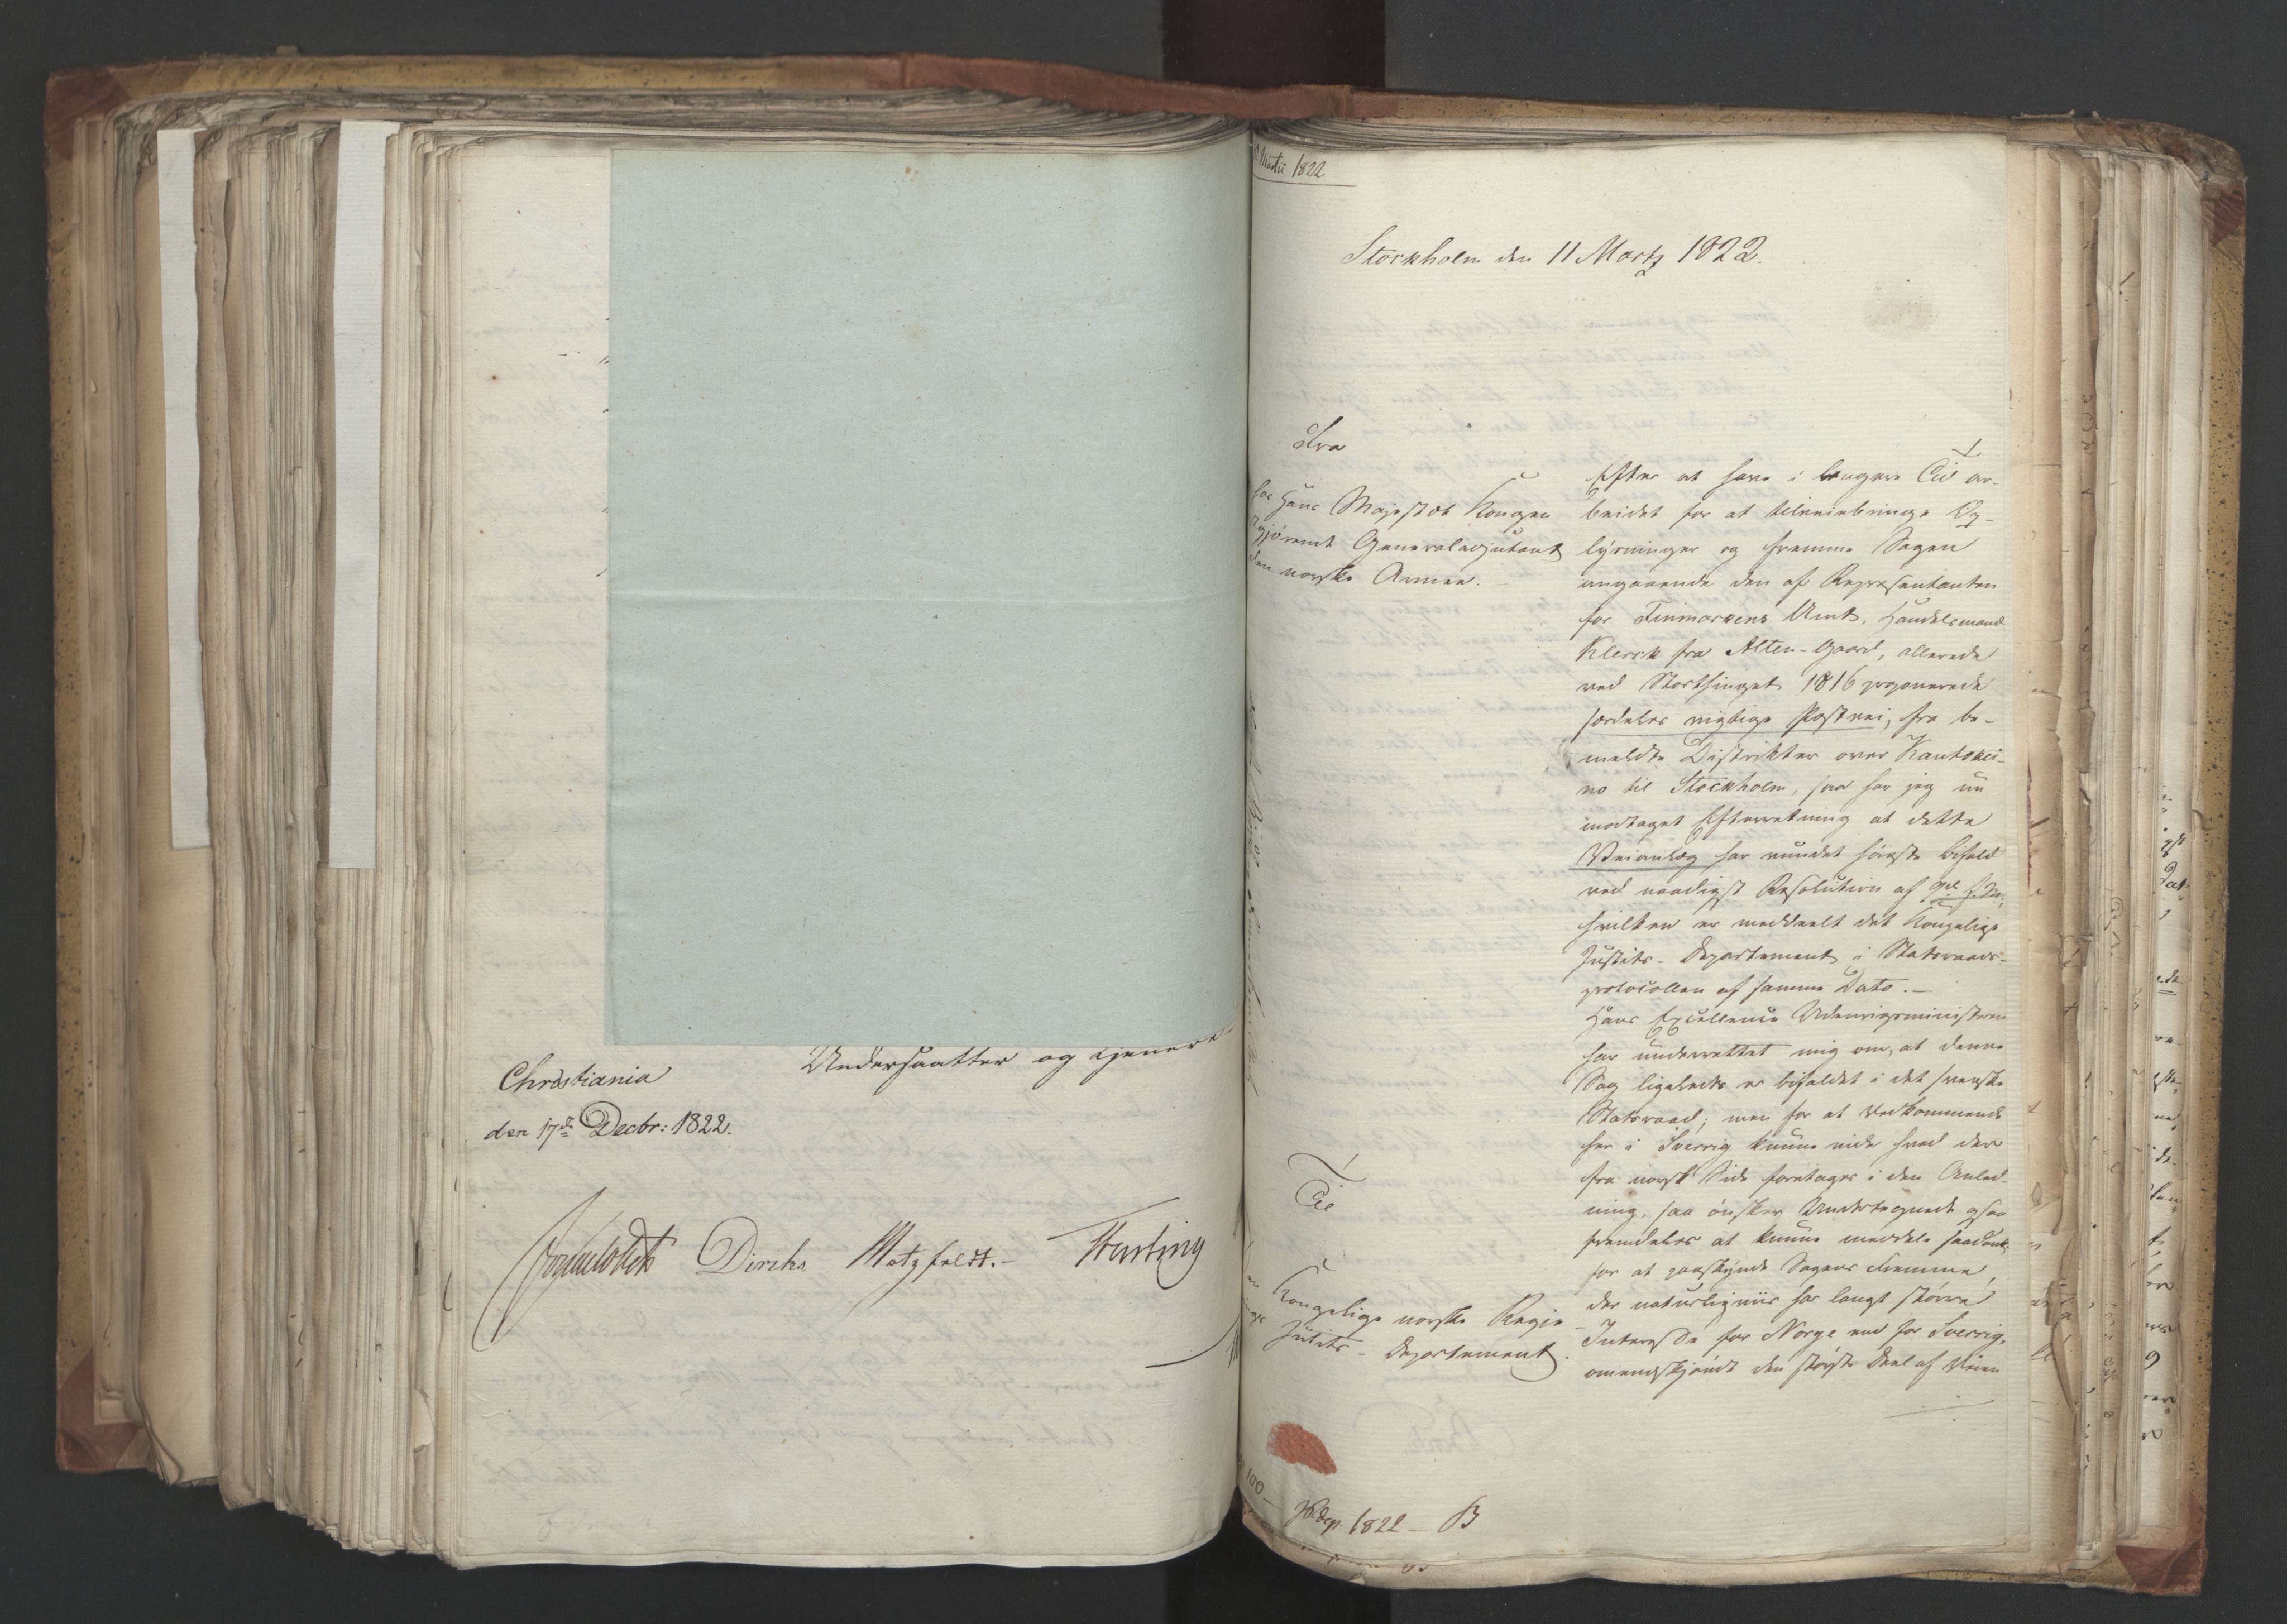 Undersaatter og tjenere
Christiania
den 17de Decbr: 1822.
Diriks Motzfeldt.
Martii 1822
Stockholm den 11 Martz 1822.
Fra
Hans Majestæt Kongen
Generaladjutant
den norske Armee.
Til
Kongelige norske Regje
Justits-Departement.
Efter at have i længere Tid ar-
beidet for at tilveiebringe Op-
lysninger og fremme Sagen
angaaende den af Repræsentanten
for Finmarkens Amt, Handelsmand
Klerck fra Alten-Gaard, allerede
ved Storthinget 1816 proponerede
særdeles vigtige Postvei, fra be-
meldte Distrikter over Kautokei-
no til Stockholm, saa har jeg nu
modtaget Efterretning at dette
Veianlæg har vundet høieste Bifald
ved naadigst Resolution af
hvilken er meddeelt det Kongelige
Justits-Departement i Statsraads-
protocollen af samme Dato. —
Hans Excellence Udenrigsministeren
har underrettet mig om, at denne
Sag ligeledes er bifaldet i det svenske
Statsraad; men for at Vedkommende
her i Sverrig kunne vide hvad der
fra norsk Side foretages i den Anled-
ning, saa ønsker Undertegnede ogsaa
fremdeles at kunne meddele saadant,
for at paaskynde Sagens Fremme,
der naturligviis har langt større
Interesse for Norge end for Sverrig,
omendskjøndt den største Deel af Veien
100
1822 — B